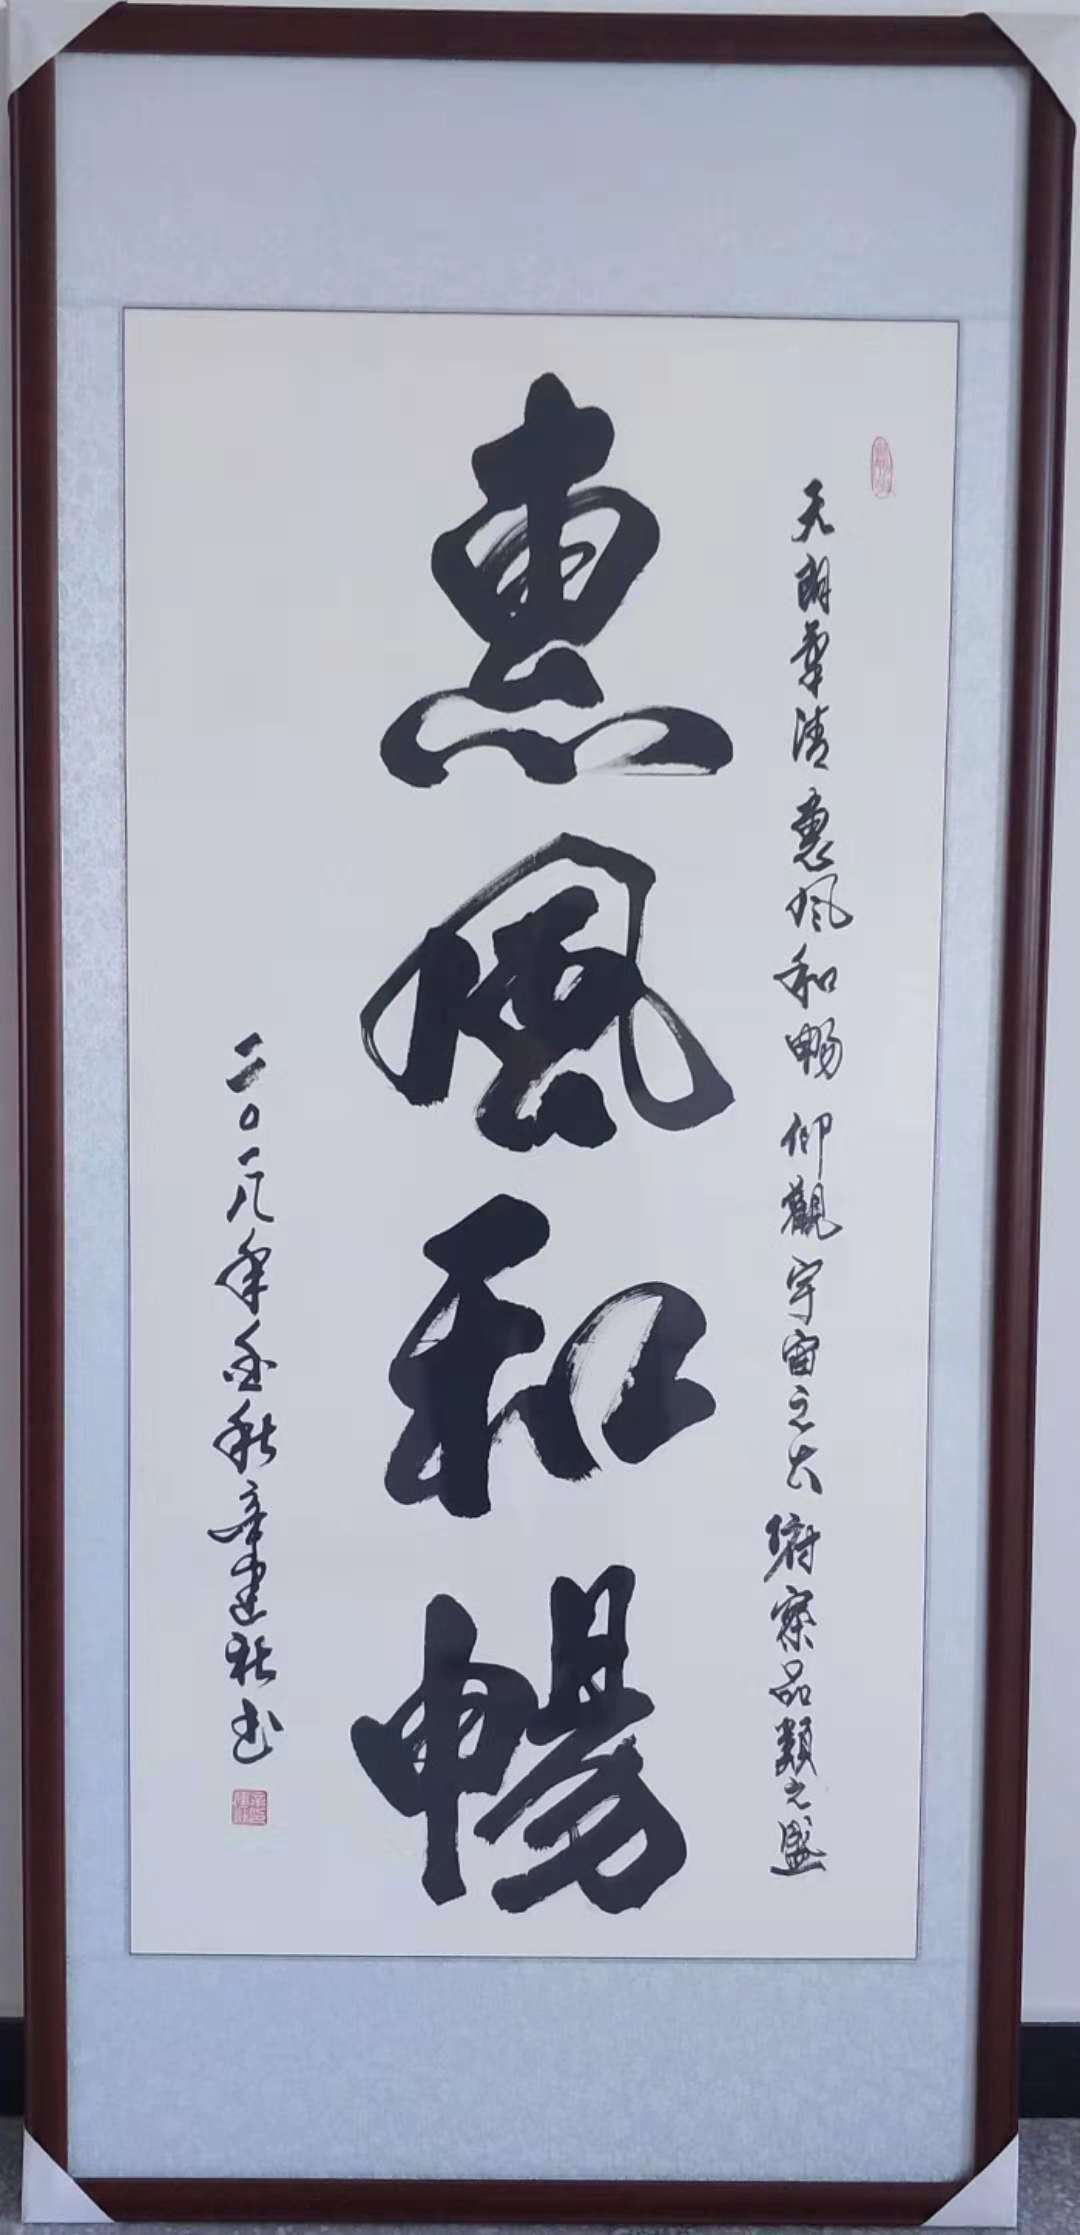 天朗氣清惠風和暢仰觀宇宙之大俯察品類之盛
惠風和暢
二〇一八年金秋章建秋书